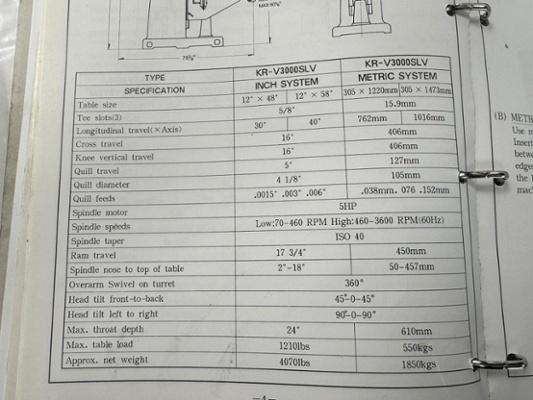 TYPE KR-V3000SLV KR-V3000SLV
SPECIFICATION INCH SYSTEM METRIC SYSTEM
Table size 12" × 48" 12" × 58" 305 × 1220mm 305 × 1473mm
Tee slots(3) 5/8" 15.9mm
Longitudinal travel(×Axis) 30" 40" 762mm 1016mm
Cross travel 16" 406mm
Knee vertical travel 16" 406mm
Quill travel 5" 127mm
Quill diameter 4 1/8" 105mm
Quill feeds .0015" .003" .006" .038mm. 076 .152mm
Spindle motor 5HP
Spindle speeds Low:70-460 RPM High:460-3600 RPM(60Hz)
Spindle taper ISO 40
Ram travel 17 3/4" 450mm
Spindle nose to top of table 2"-18" 50-457mm
Overarm Swivel on turret 360°
Head tilt front-to-back 45°-0-45°
Head tilt left to right 90°-0-90°
Max. throat depth 24" 610mm
Max. table load 1210lbs 550kgs
Approx. net weight 4070lbs 1850kgs
—4—
(B) METH
Use
Insert
betwe
edges
the
mac